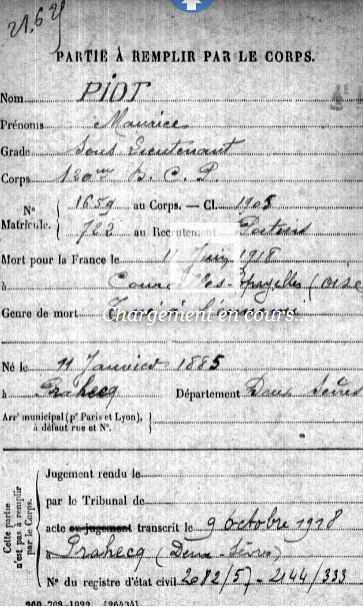 21.621
PARTIE À REMPLIR PAR LE CORPS.
Nom PIOT
Prénoms Maurice
Grade Sous Lieutenant
Corps 120me B. C. P
N° Matricule. 1659 au Corps. — Cl. 1905
722 au Recrutement Poitiers
Mort pour la France le 11 Juin 1918
à les-Epayelles (Oise
Genre de mort l'ennemi
Chargement en cours...
Né le 11 Janvier 1885
à Prahecq Département Deux Sèvres
Arrt municipal (pr Paris et Lyon),
à défaut rue et N°.
Cette partie n'est pas à remplir par le Corps.
Jugement rendu le
par le Tribunal de
acte ou jugement transcrit le 9 octobre 1918
à Prahecq (Deux-Sèvres)
N° du registre d'état civil 2682/57 - 2144/333